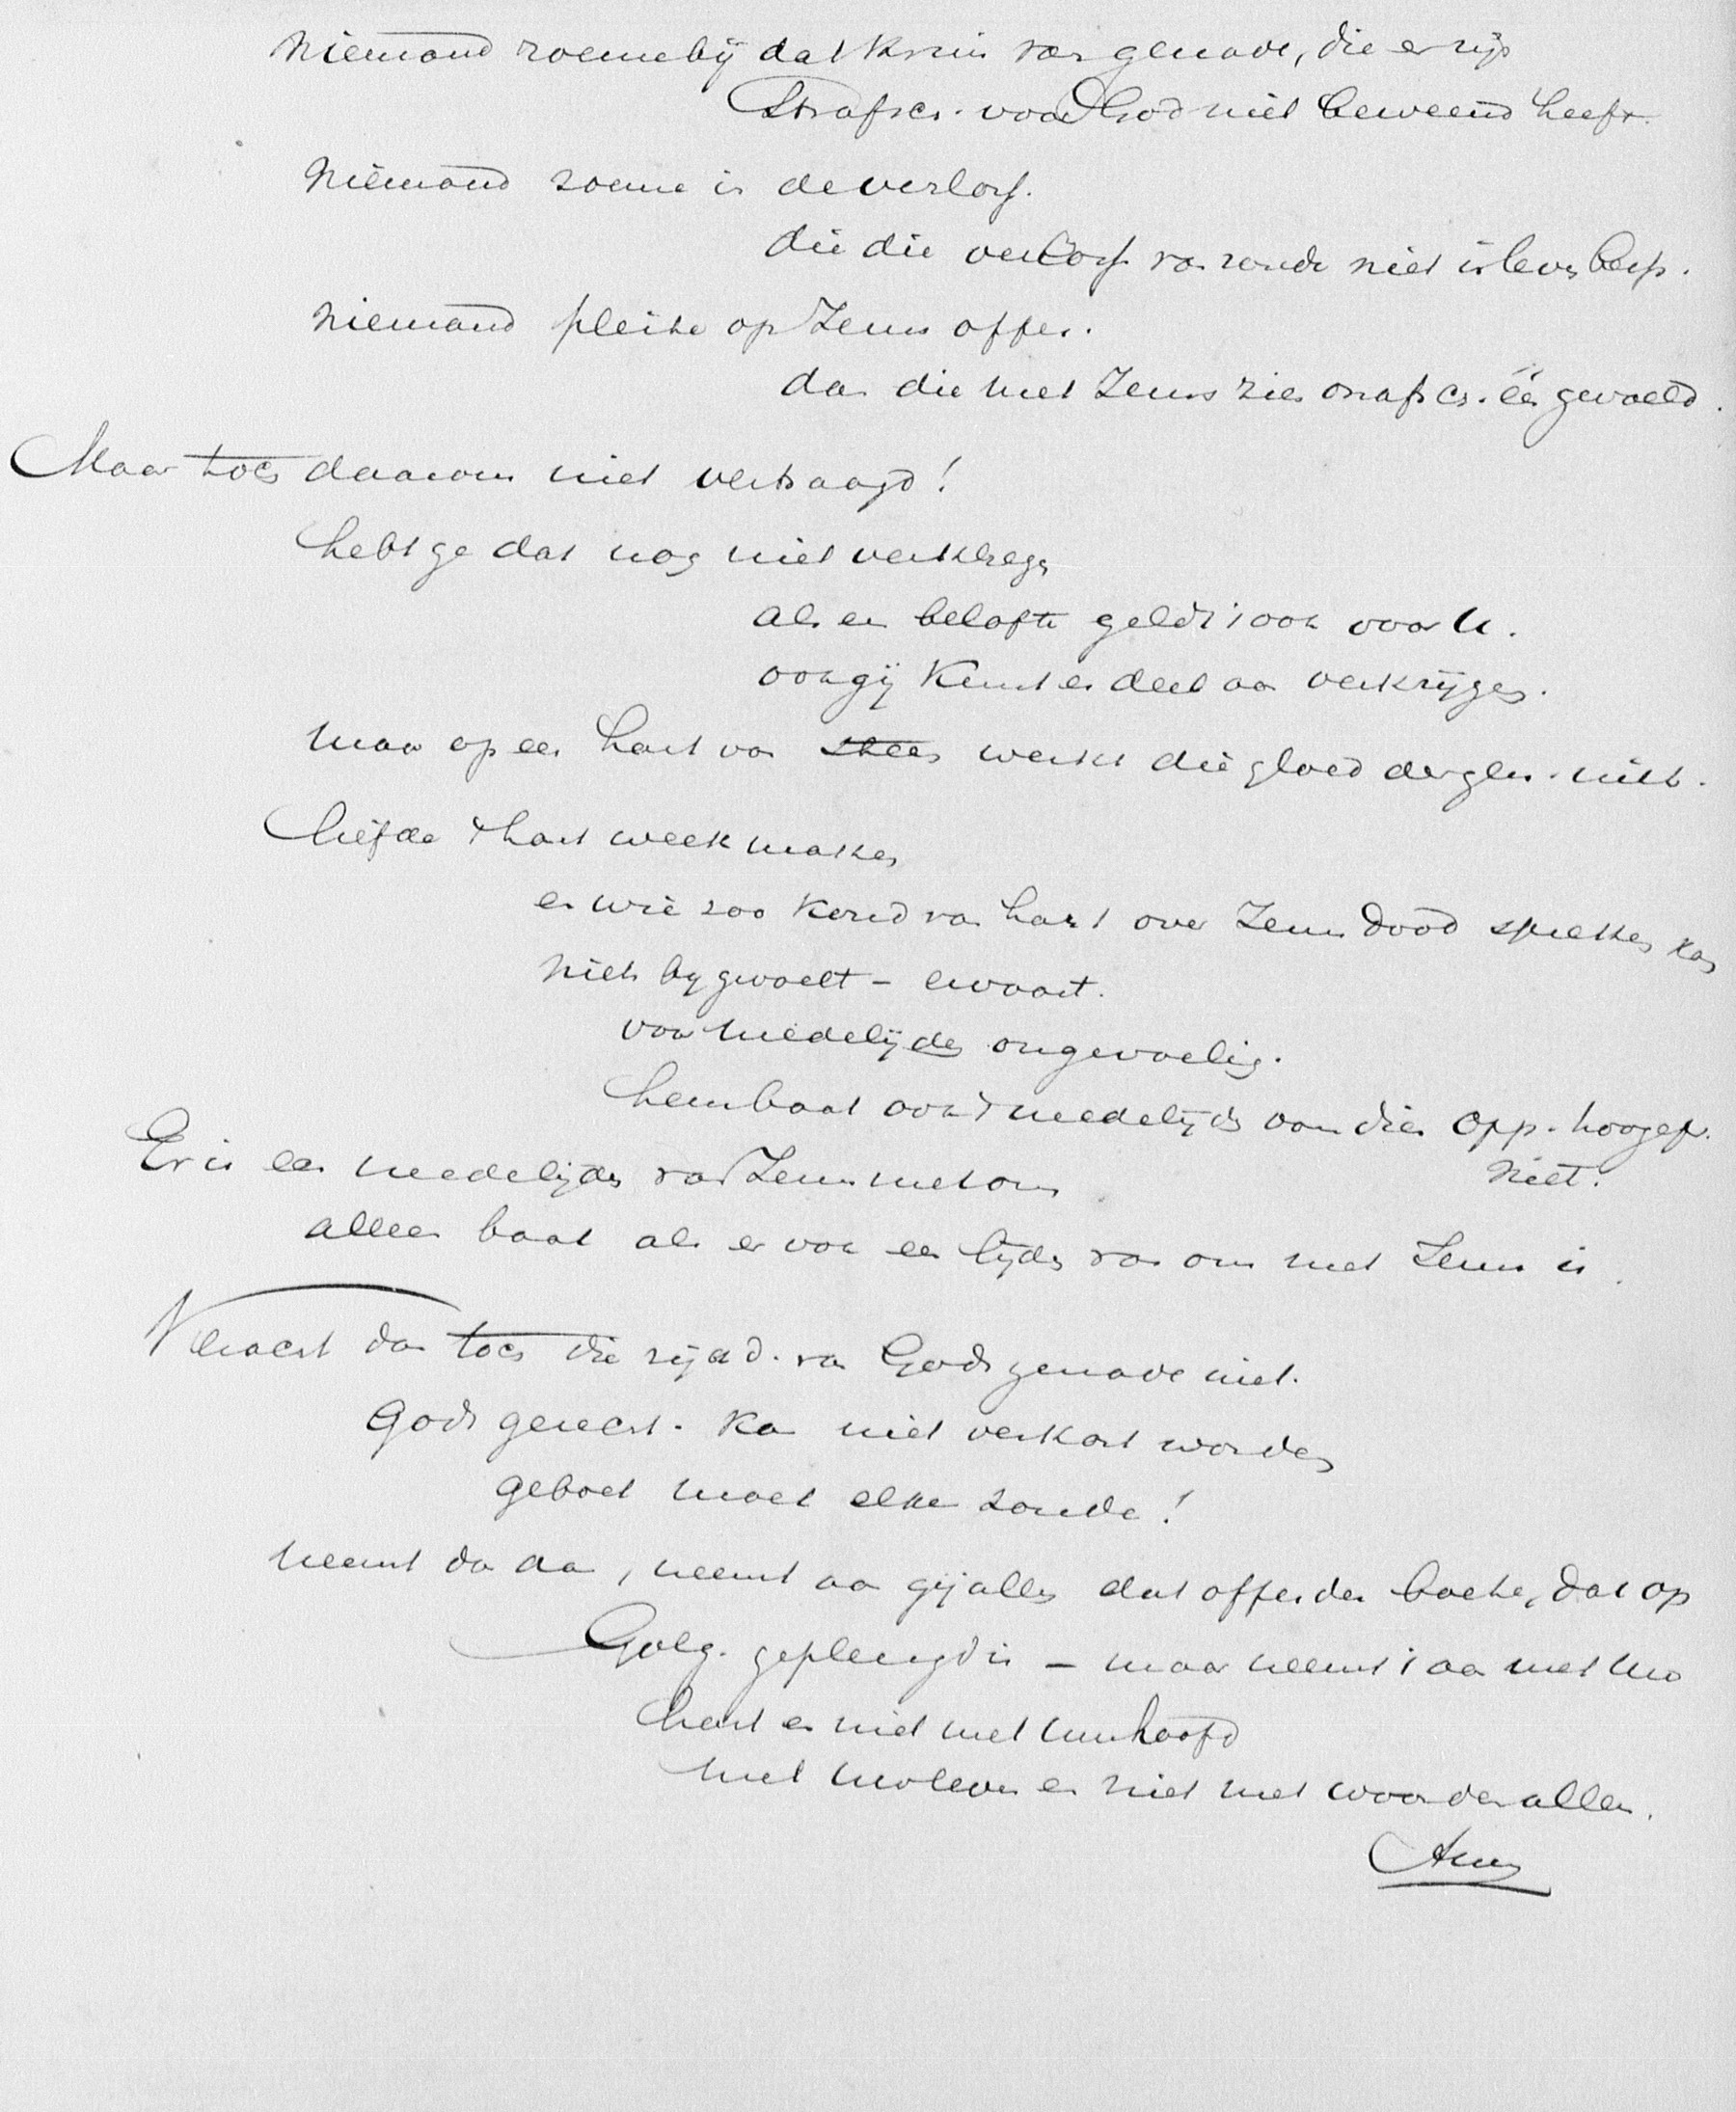 Niemand roeme bij dat kruis van genade, die er zijn
Strafsch. voor God niet beweend heeft.
Niemand roeme in de verlosf.
die die verlosf van zonde niet in leven heeft.
Niemand pleite op Jezus offer.
dan die met Jezus zich onafsch. één gevoeld.
Maar toch daarom niet vertraagd!
hebt ge dat nog niet verkregen
als een belofte geldt 't ook voor U.
ook gij kunt er deel aan verkrijgen.
maar op een hart van steen werkt die gloed der gen. niet.
liefde 't hart week maken
en wie zoo koud van hart over Jezus dood spreken kan
niets bij gevoelt – ervaart.
voor medelijden ongevoelig.
hem baat ook 't medelijden van dien Opp. hoogepr.
niet.
Er is een medelijden van Jezus met ons
alleen baat als er ook een lijden van ons met Jezus is.
Veracht dan toch die rijkd. van Gods genade niet.
Gods gerecht. kan niet verkort worden
geboet moet elke zonde!
neemt dan aan, neemt aan gij allen dat offer der boete, dat op
Golg. geplengd is – maar neemt 't aan met Uw
hart en niet met Uw hoofd
met Uw leven en niet met woorden alleen.
Amen